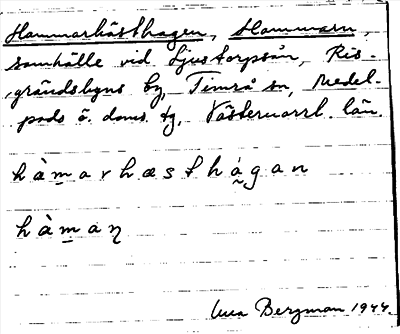 Hammarhästhagen, Hammarn,
samhälle vid Ljustorpsån, Ris-
grändsbyns by, Timrå sn, Medel-
pads ö. doms. tg, Västernorrl. län.
hàmarhæsthágan
hàmaη
Bergman 1944.